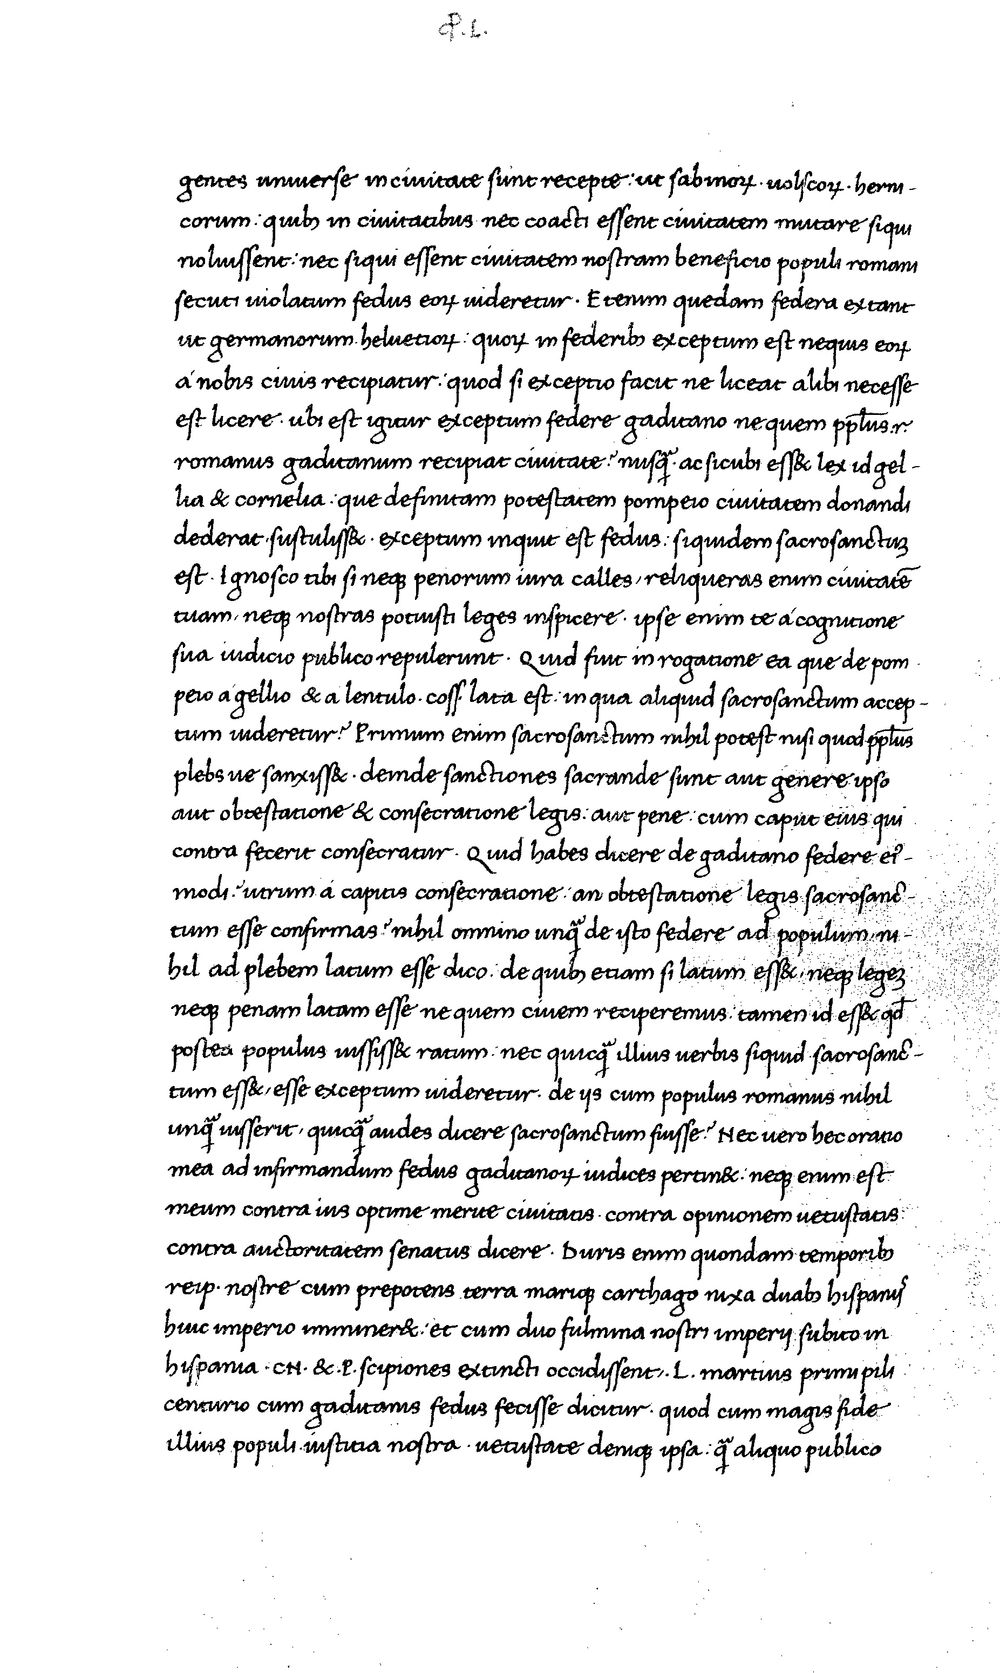 .P.L.
gentes universe in civitate sunt recepte: ut sabinoꝝ · volscoꝝ · herni-
corum: quibꝫ in civitatibus nec coacti essent civitatem mutare siqui
noluissent: nec siqui essent civitatem nostram beneficio populi romani
secuti violatum fedus eoꝝ videretur · Etenim quedam federa extant
ut germanorum helvetioꝝ: quoꝝ in federibꝫ exceptum est nequis eoꝝ
a nobis civis recipiatur: quod si exceptio facit ne liceat alibi necesse
est licere · ubi est igitur exceptum federe gaditano ne quem pp̅lus r
romanus gaditanum recipiat civitate? nusq̃ · ac sicubi ess& lex id gel-
lia & cornelia: que definitam potestatem pompeio civitatem donandi
dederat · sustuliss& · exceptum inquit est fedus: siquidem sacrosanctuꝫ
est · Ignosco tibi si neqꝫ penorum iura calles, reliqueras enim civitatē
tuam, neqꝫ nostras potuisti leges inspicere · ipse enim te a cognitione
sua iudicio publico repulerunt · Quid fuit in rogatione ea que de pom
peio a gellio & a lentulo · coss̅ lata est: in qua aliquid sacrosanctum accep-
tum videretur? Primum enim sacrosanctum nihil potest nisi quod pp̅lus
plebs ve sanxiss& · deinde sanctiones sacrande sunt aut genere ipso
aut obtestatione & consecratione legis: aut pene: cum caput eius qui
contra fecerit consecratur · Quid habes dicere de gaditano federe eiꝰ-
modi? utrum a capitis consecratione: an obtestatione legis sacrosanc̅-
tum esse confirmas? nihil omnino unq̃ de isto federe ad populum, ni-
hil ad plebem latum esse dico: de quibꝫ etiam si latum ess&, neqꝫ legeꝫ
neqꝫ penam latam esse ne quem civem reciperemus: tamen id ess& qd̅
postea populus iussiss& ratum: nec quicq̃ illius verbis siquid sacrosanc̅-
tum ess&, esse exceptum videretur · de ijs cum populus romanus nihil
unq̃ iusserit, quicq̃ audes dicere sacrosanctum fuisse? Nec vero hec oratio
mea ad infirmandum fedus gaditanoꝝ iudices pertin&: neqꝫ enim est
meum contra ius optime merite civitatis · contra opinionem vetustatis:
contra auctoritatem senatus dicere · Duris enim quondam temporibꝫ
reip· nostre cum prepotens terra mariqꝫ carthago nixa duabꝫ hispanijs
huic imperio imminer&: et cum duo fulmina nostri imperij subito in
hispania · CN · & · P. scipiones extincti occidissent, · L. martius primi pili
centurio cum gaditanis fedus fecisse dicitur · quod cum magis fide
illius populi iustitia nostra · vetustate deniqꝫ ipsa: q̃ aliquo publico